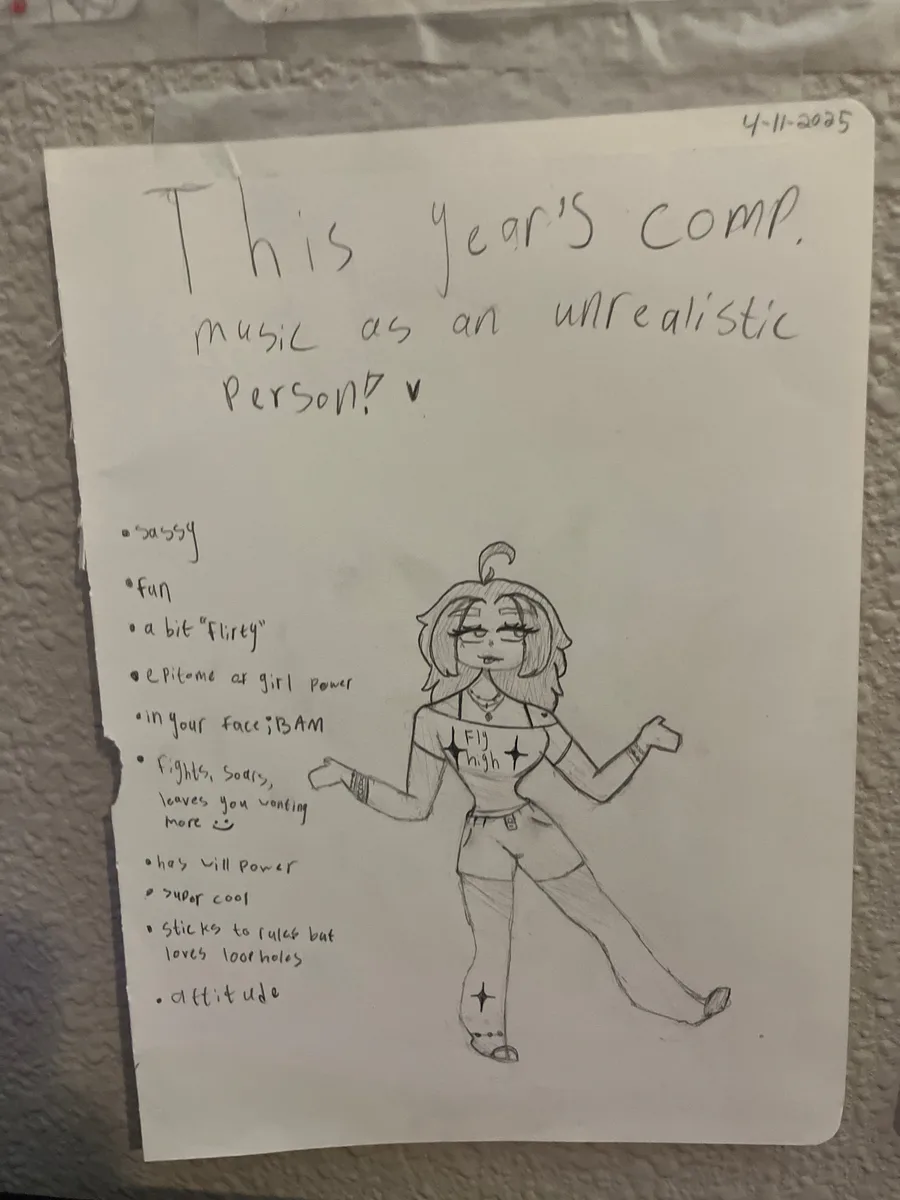 4-11-2025
This year's comp.
music as an unrealistic
person!? ♥
• sassy
• fun
• a bit "flirty"
• epitome of girl power
• in your face; BAM
• fights, soars,
leaves you wanting
more :)
• has will power
• super cool
• sticks to rules but
loves loopholes
• attitude
Fly
high